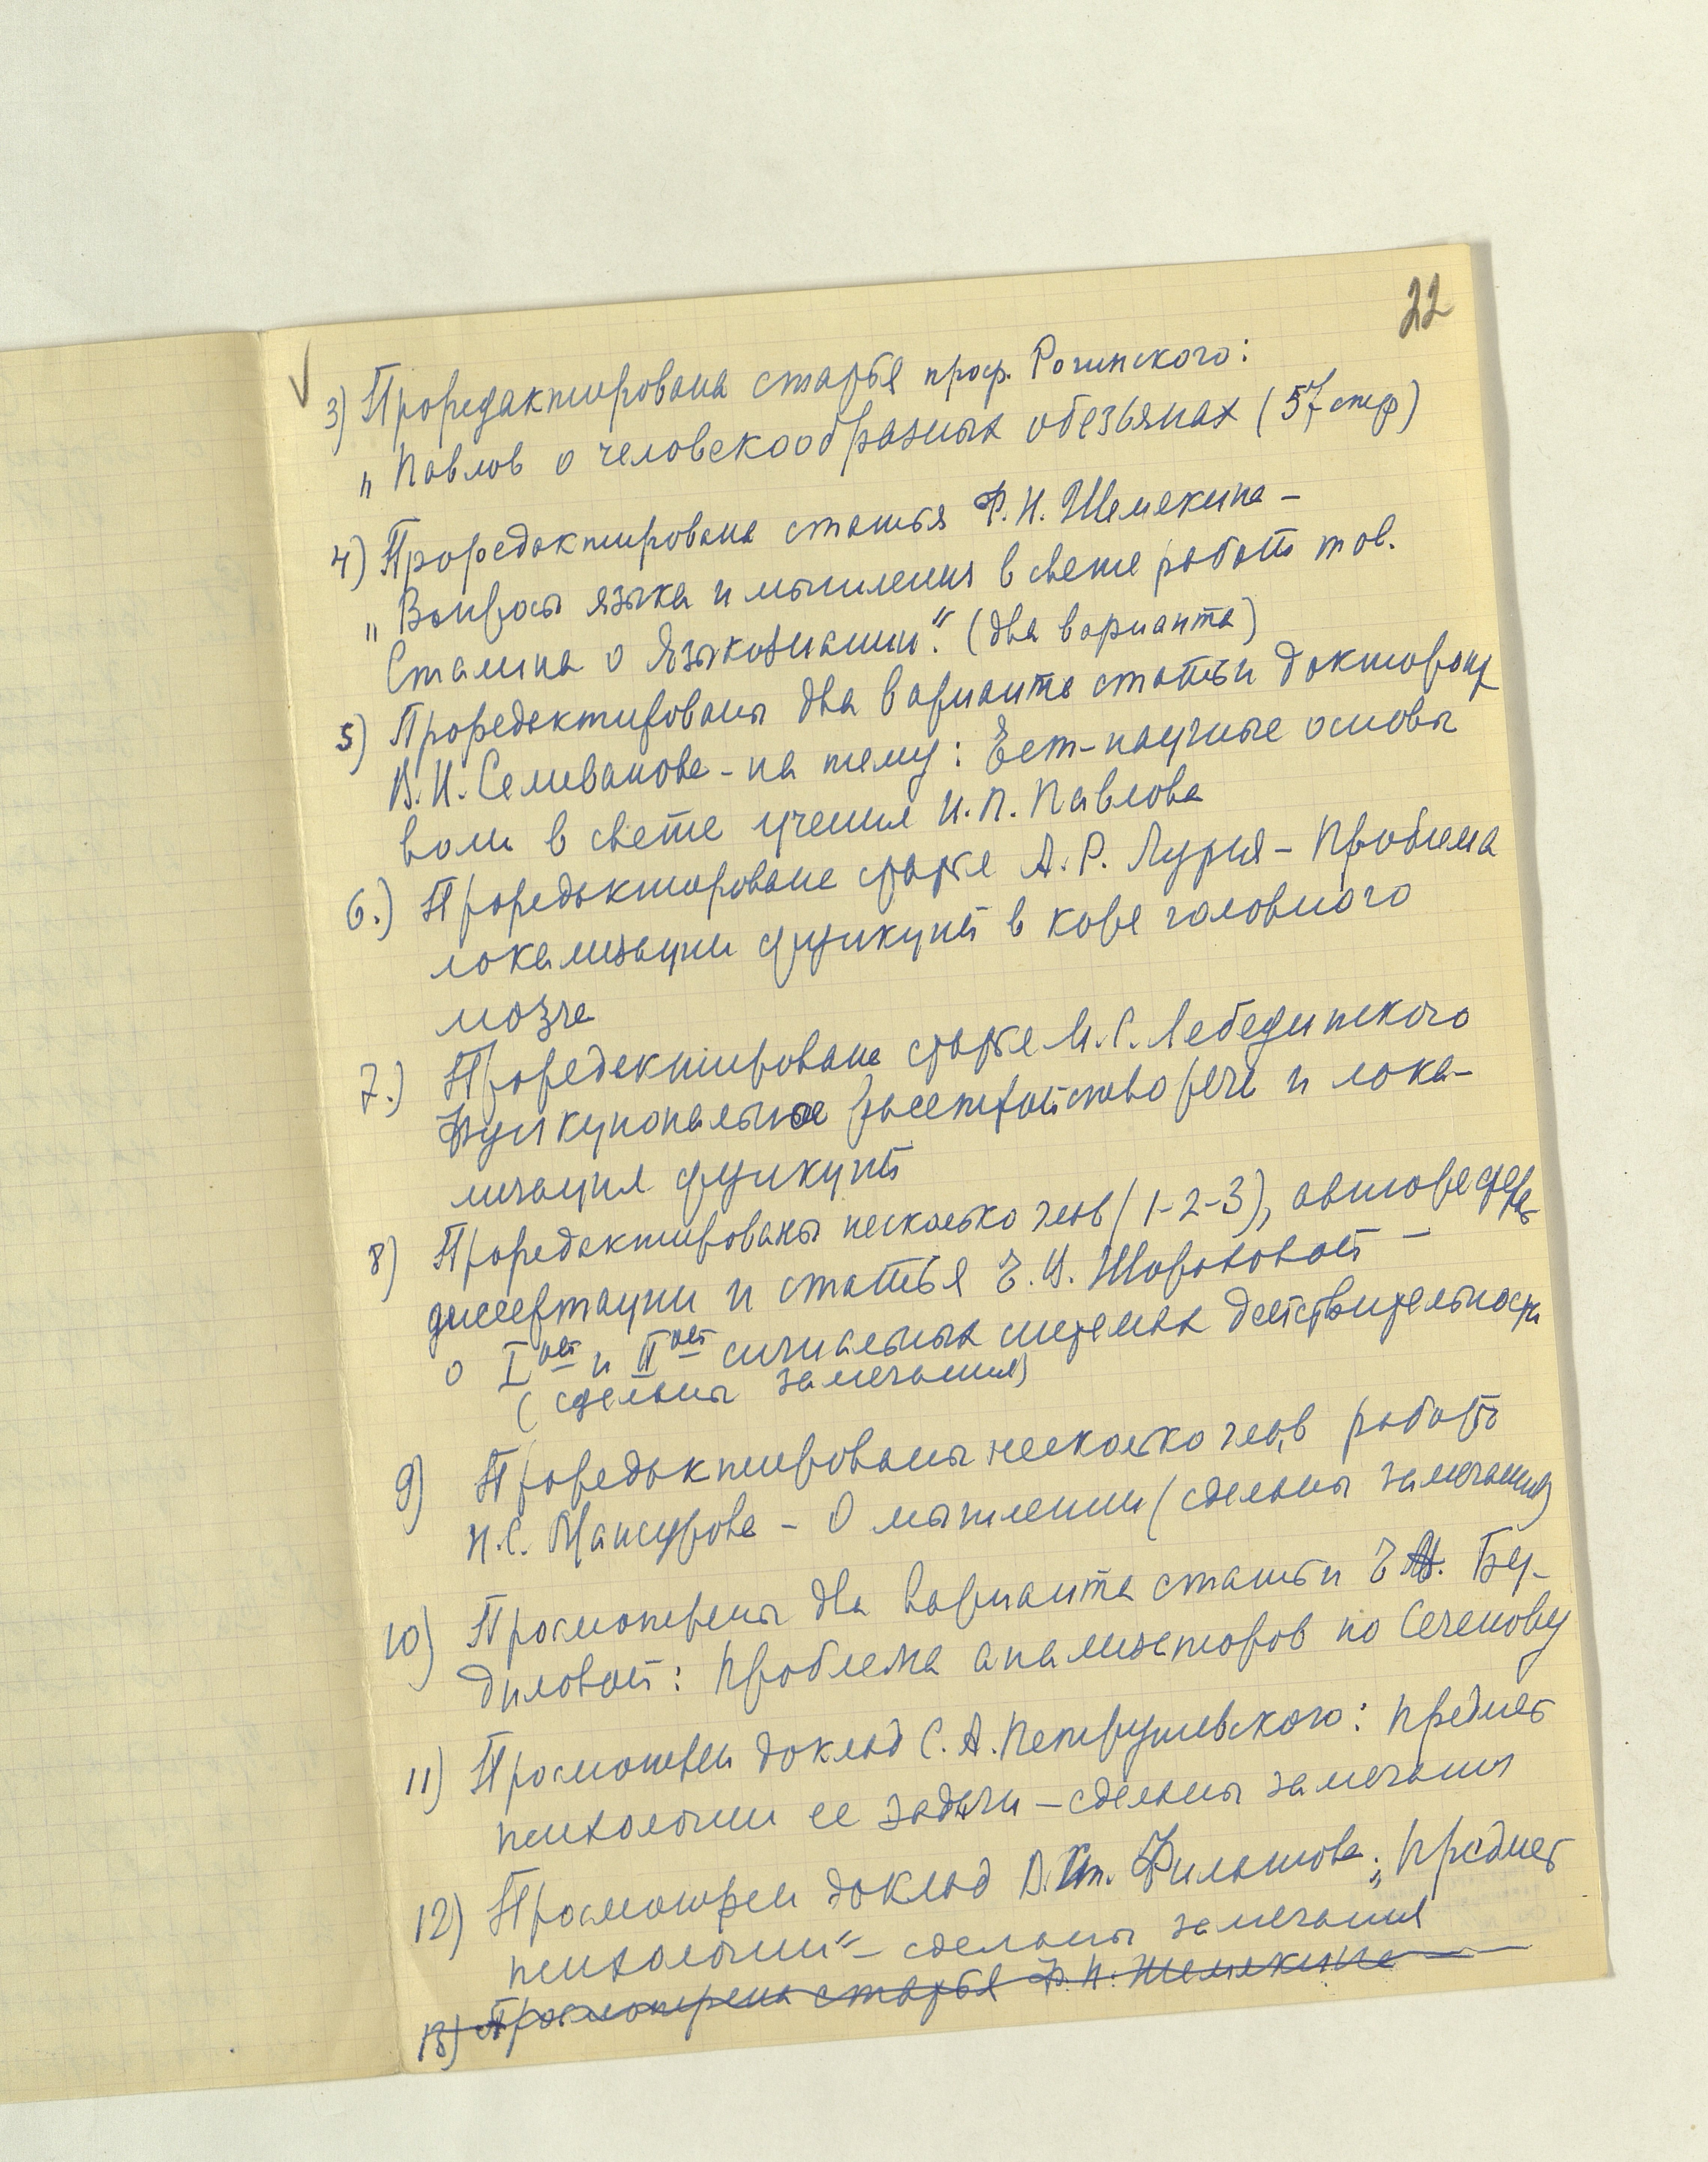 22
3) Проредактирована статья проф. Рогинского:
„Павлов о человекообразных обезьянах (57 стр)
4) Проредактирована статья Ф. Н. Шемякина –
„Вопросы языка и мышления в свете работ тов.
Сталина о языкознании". (два варианта)
5) Проредактированы два варианта статьи докторанта
В. И. Селиванова – на тему: Ест-научные основы
воли в свете учения И. П. Павлова
6.) Проредактирована статья А. Р. Лурия – Проблема
локализации функций в коре головного
мозга
7.) Проредактирована статья М. С. Лебединского
Функциональное расстройство речи и лока-
лизация функций
8) Проредактированы несколько глав (1-2-3), автореферат
диссертации и статья Е. В. Шороховой –
о Iой и IIой сигнальных системах действительности
(сделаны замечания)
9) Проредактированы несколько глав работы
Н. С. Мансурова – О мышлении (сделаны замечания)
10) Просмотрены два варианта статьи Е. А. Бу-
диловой: Проблема анализаторов по Сеченову
11) Просмотрен доклад С. А. Петрушевского: Предмет
психологии ее задачи – сделаны замечания
12) Просмотрен доклад В. Филатова: „Предмет
психологии" – сделаны замечания
13) Просмотрена статья Ф. Н. Шемякина